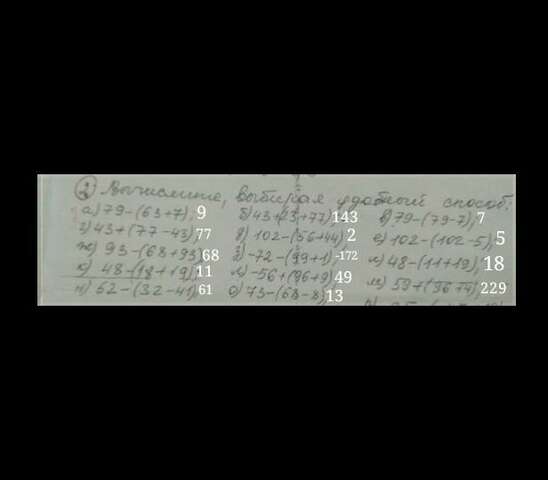 2 Вычислите, выбирая удобный способ:
а) 79-(63+7); 9 б) 43+(23+77); 143 в) 79-(79-7); 7
г) 43+(77-43); 77 д) 102-(56+44); 2 е) 102-(102-5); 5
ж) 93-(68+93) 68 -72-(99+1); -172 48-(11+19); 18
к) 48-(18+19) 11 -56+(96+9) 49 59+(96+4) 229
н) 62-(32-41) 61 о) 73-(68-8) 13